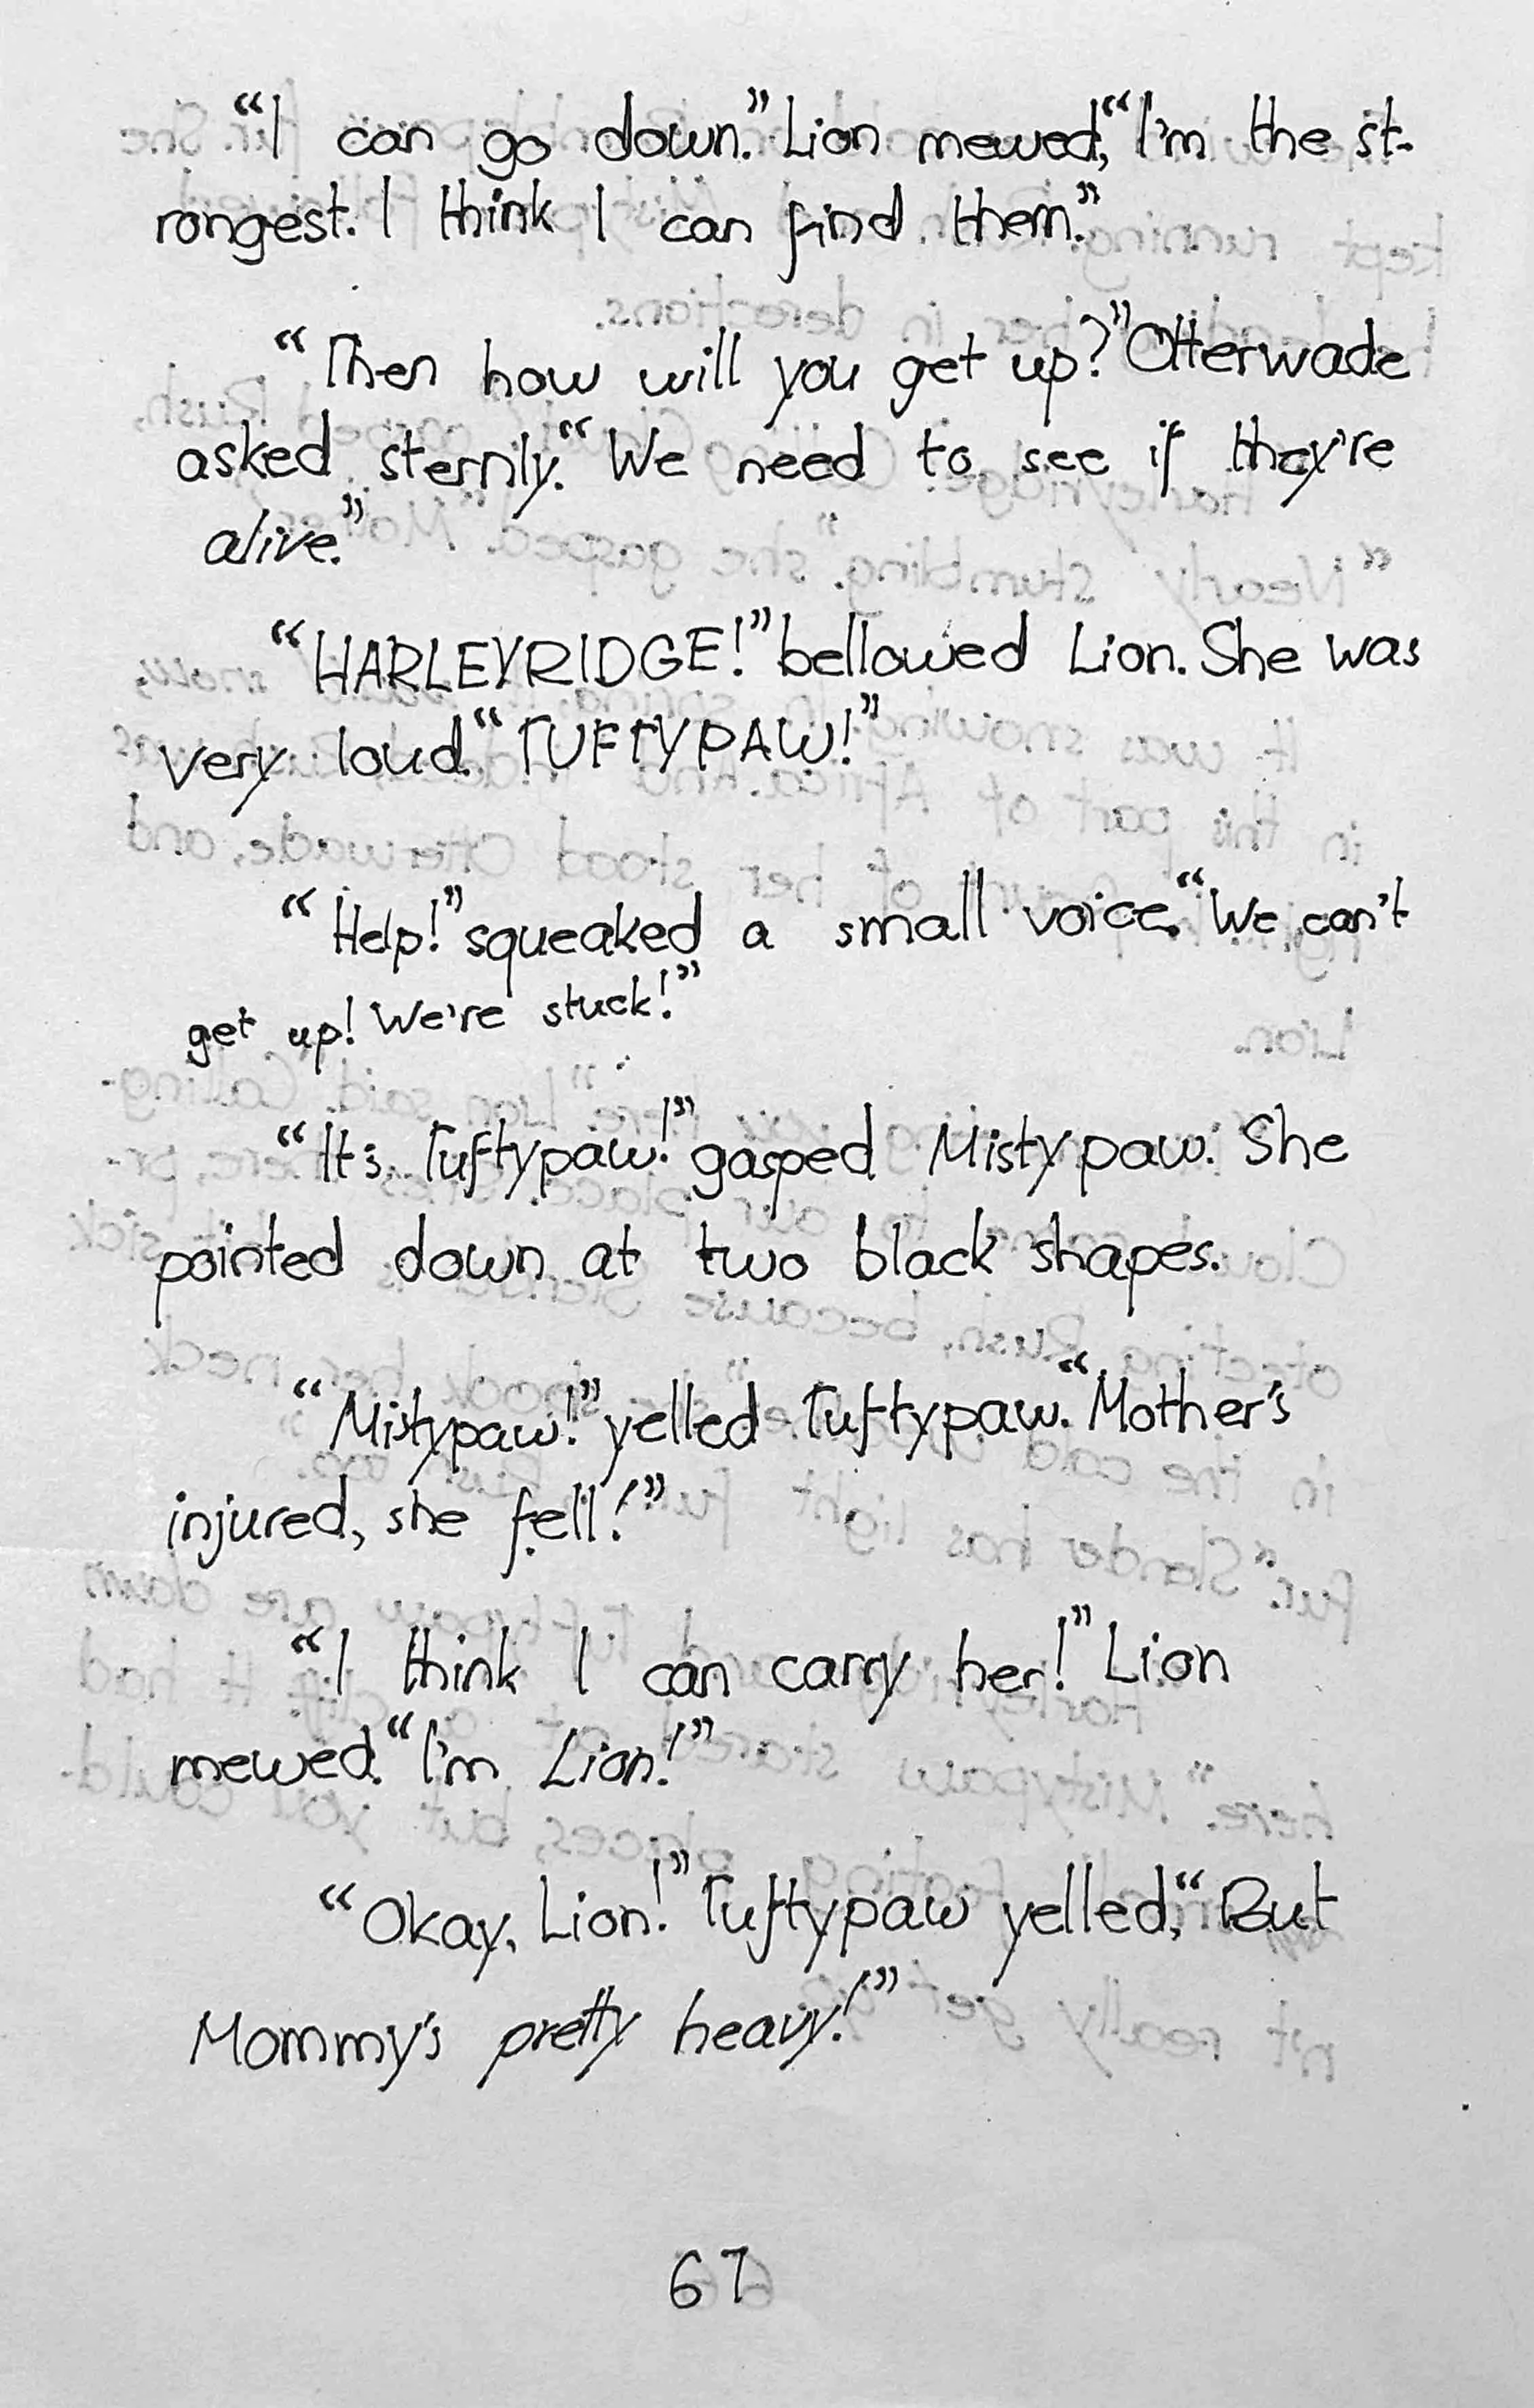 “I can go down.” Lion mewed, “I'm the st-
rongest. I think I can find them.”
“Then how will you get up?” Otterwade
asked sternly. “We need to see if they're
alive.”
“HARLEYRIDGE!” bellowed Lion. She was
very loud. “TUFTYPAW!”
“Help!” squeaked a small voice. “We can't
get up! We're stuck!”
“It's Tuftypaw!” gasped Mistypaw. She
pointed down at two black shapes.
“Mistypaw!” yelled Tuftypaw. “Mother's
injured, she fell!”
“I think I can carry her!” Lion
mewed. “I'm Lion!”
“Okay, Lion!” Tuftypaw yelled, “But
Mommy's pretty heavy!”
67